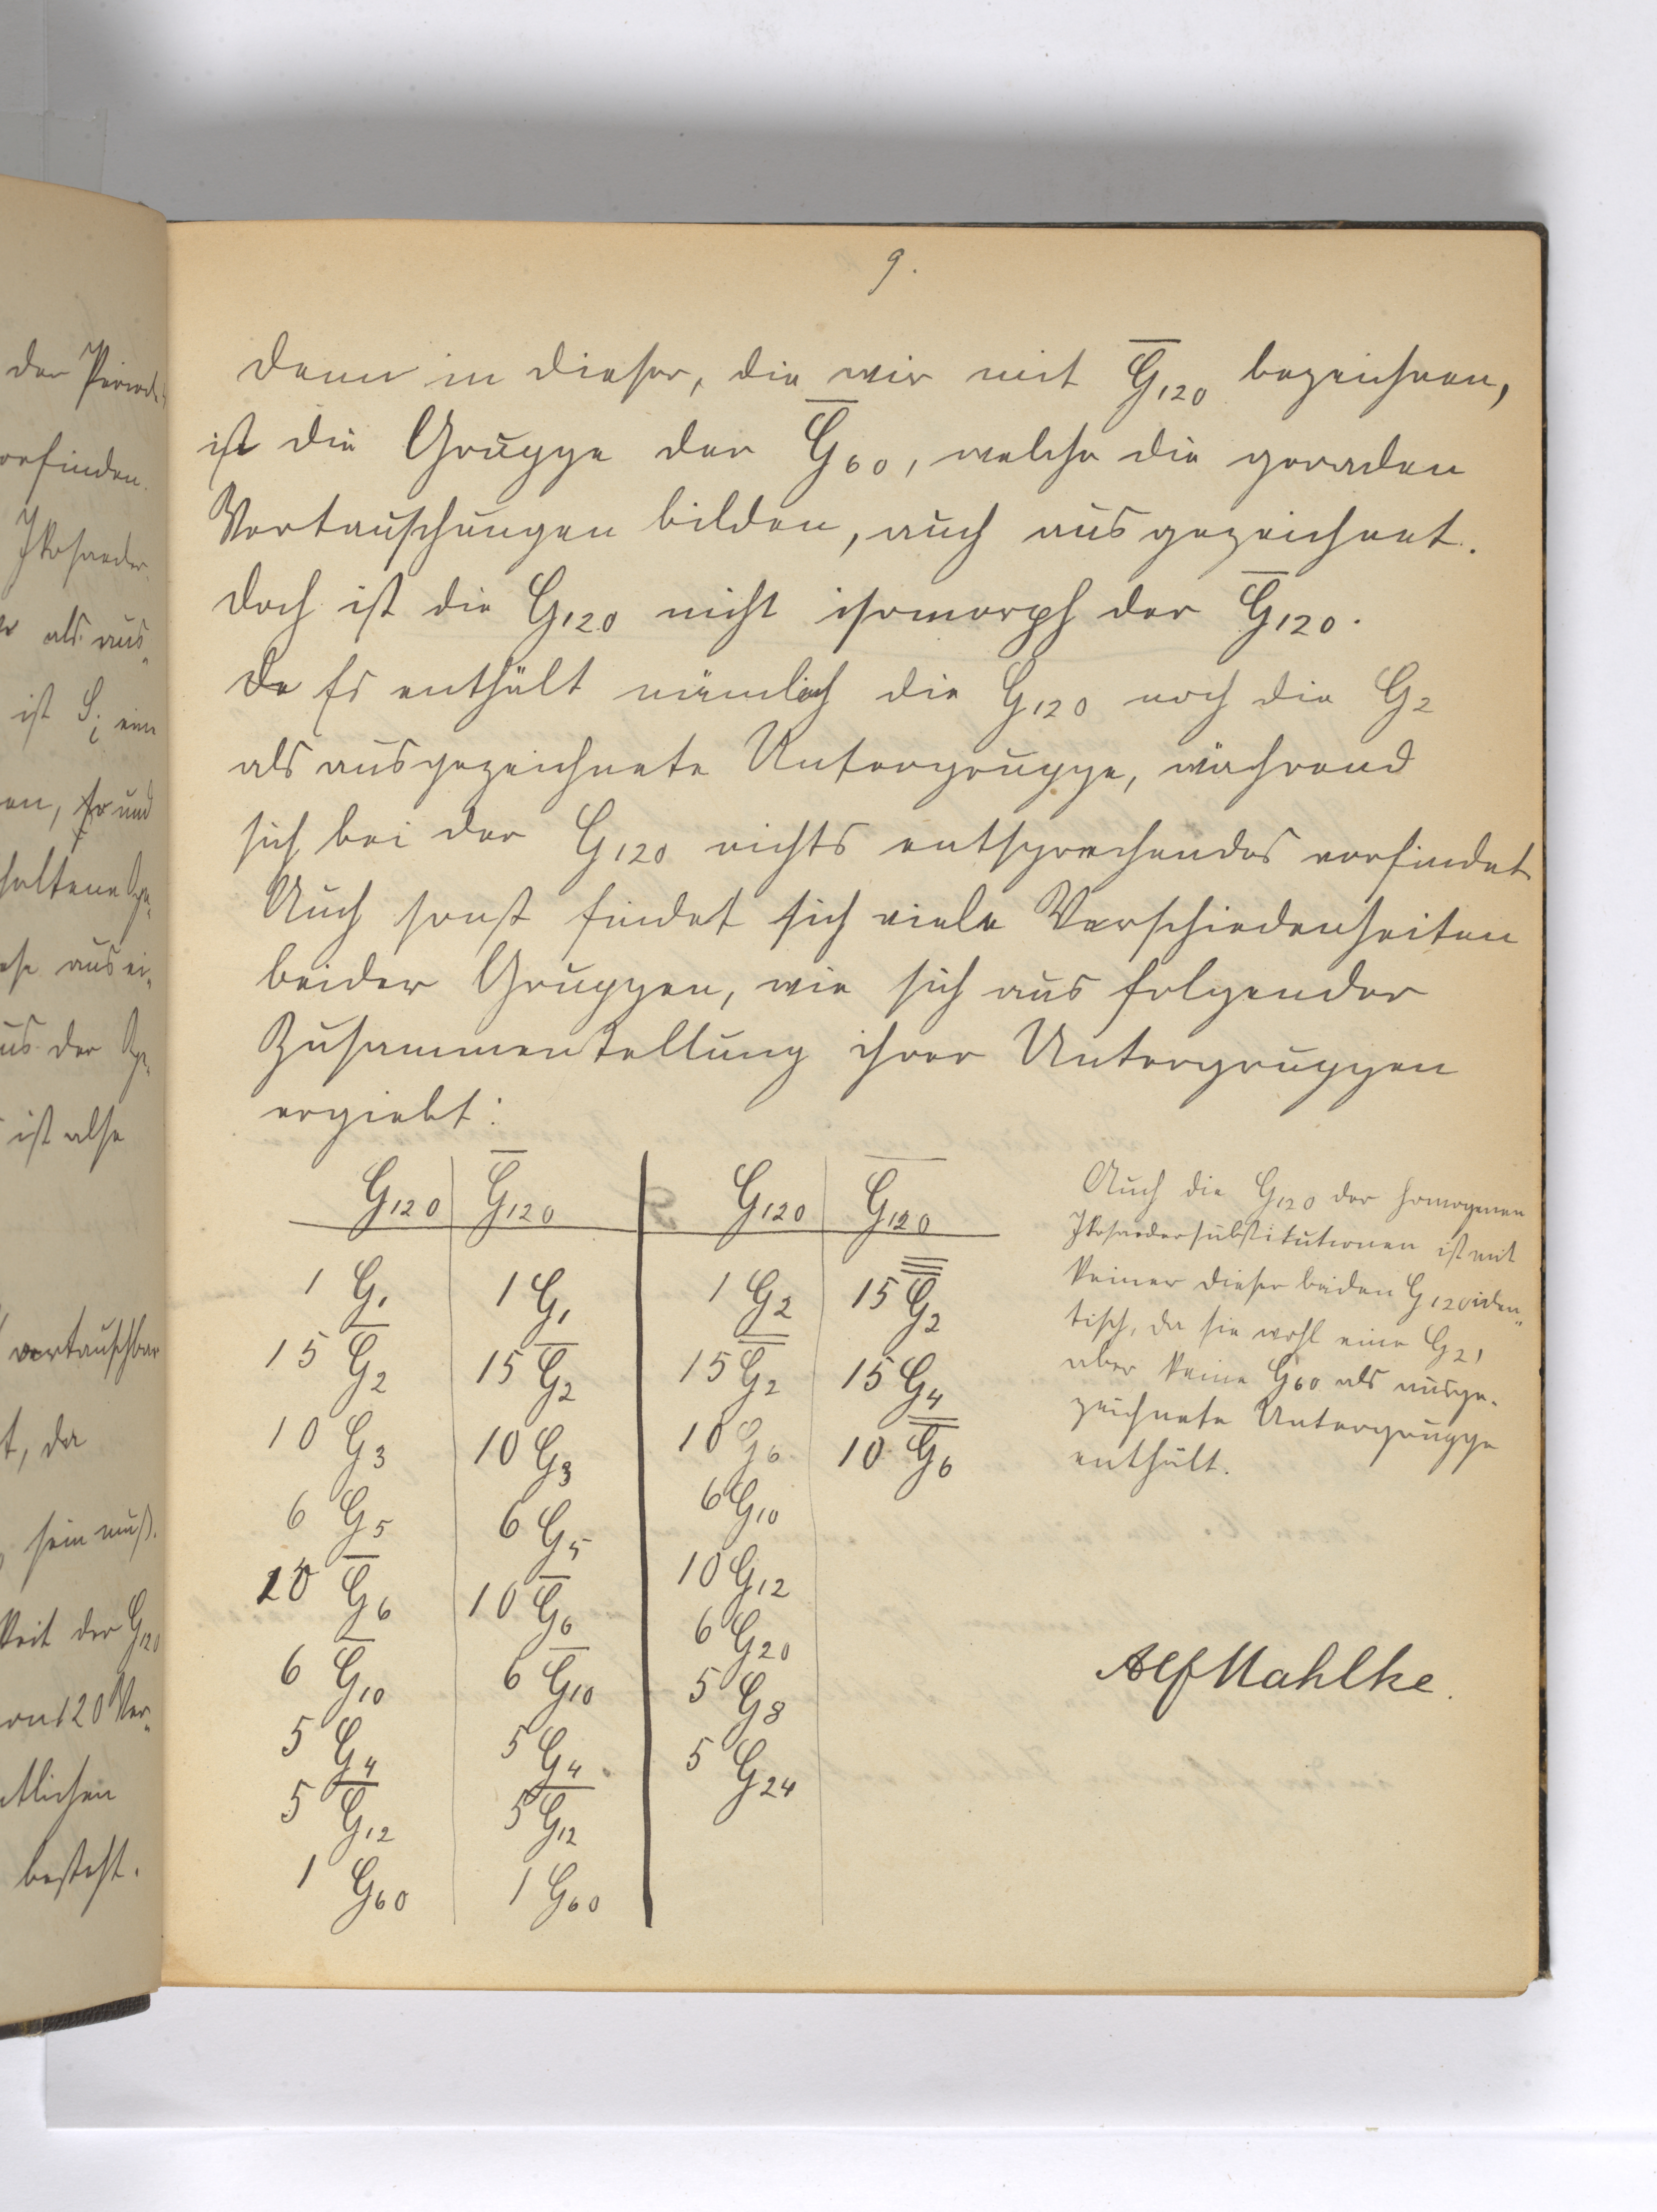 9.
denn in dieser, die wir mit G̅120 bezeichnen,
ist die Gruppe der G̅60, welche die geraden
Vertauschungen bilden, auch ausgezeichnet.
Doch ist die G120 nicht isomorph der G̅120.
Da Es enthält nämlich die G120 noch die G2
als ausgezeichnete Untergruppe, während
sich bei der G120 nichts entsprechendes vorfindet
Auch sonst findet sich viele Verschiedenheiten
beider Gruppen, wie sich aus folgender
Zusammenstellung ihrer Untergruppen
ergiebt:
G120 G̅120 G120 G̅120
1 G1 1 G1 1 G2 15 G̿̅2
15 G̅2 15 G̅2 15 G̿2 15 G4
10 G3 10 G3 10 G6 10 G̿6
6 G5 6 G5 6 G10
10 G̅6 10 G̅6 10 G12
6 G̅10 6 G̅10 6 G20
5 G4 5 G4 5 G8
5 G̅12 5 G̅12 5 G24
1 G60 1 G60
Auch die G120 der homogenen
Ikosaedersubstitutionen ist mit
keiner dieser beiden G120 iden„
tisch, da sie wohl eine G2,
aber keine G60 als ausge„
zeichnete Untergruppe
enthält.
Alf Mahlke.
der Periode
vorfinden.
Ikosaeder
als aus„
ist Si eine
en, so und
haltene
aus ei„
aus der
ist also
vertauschbar
t, da
sein muß.
keit der G120
von 120 Ver„
tlichen
besteht.